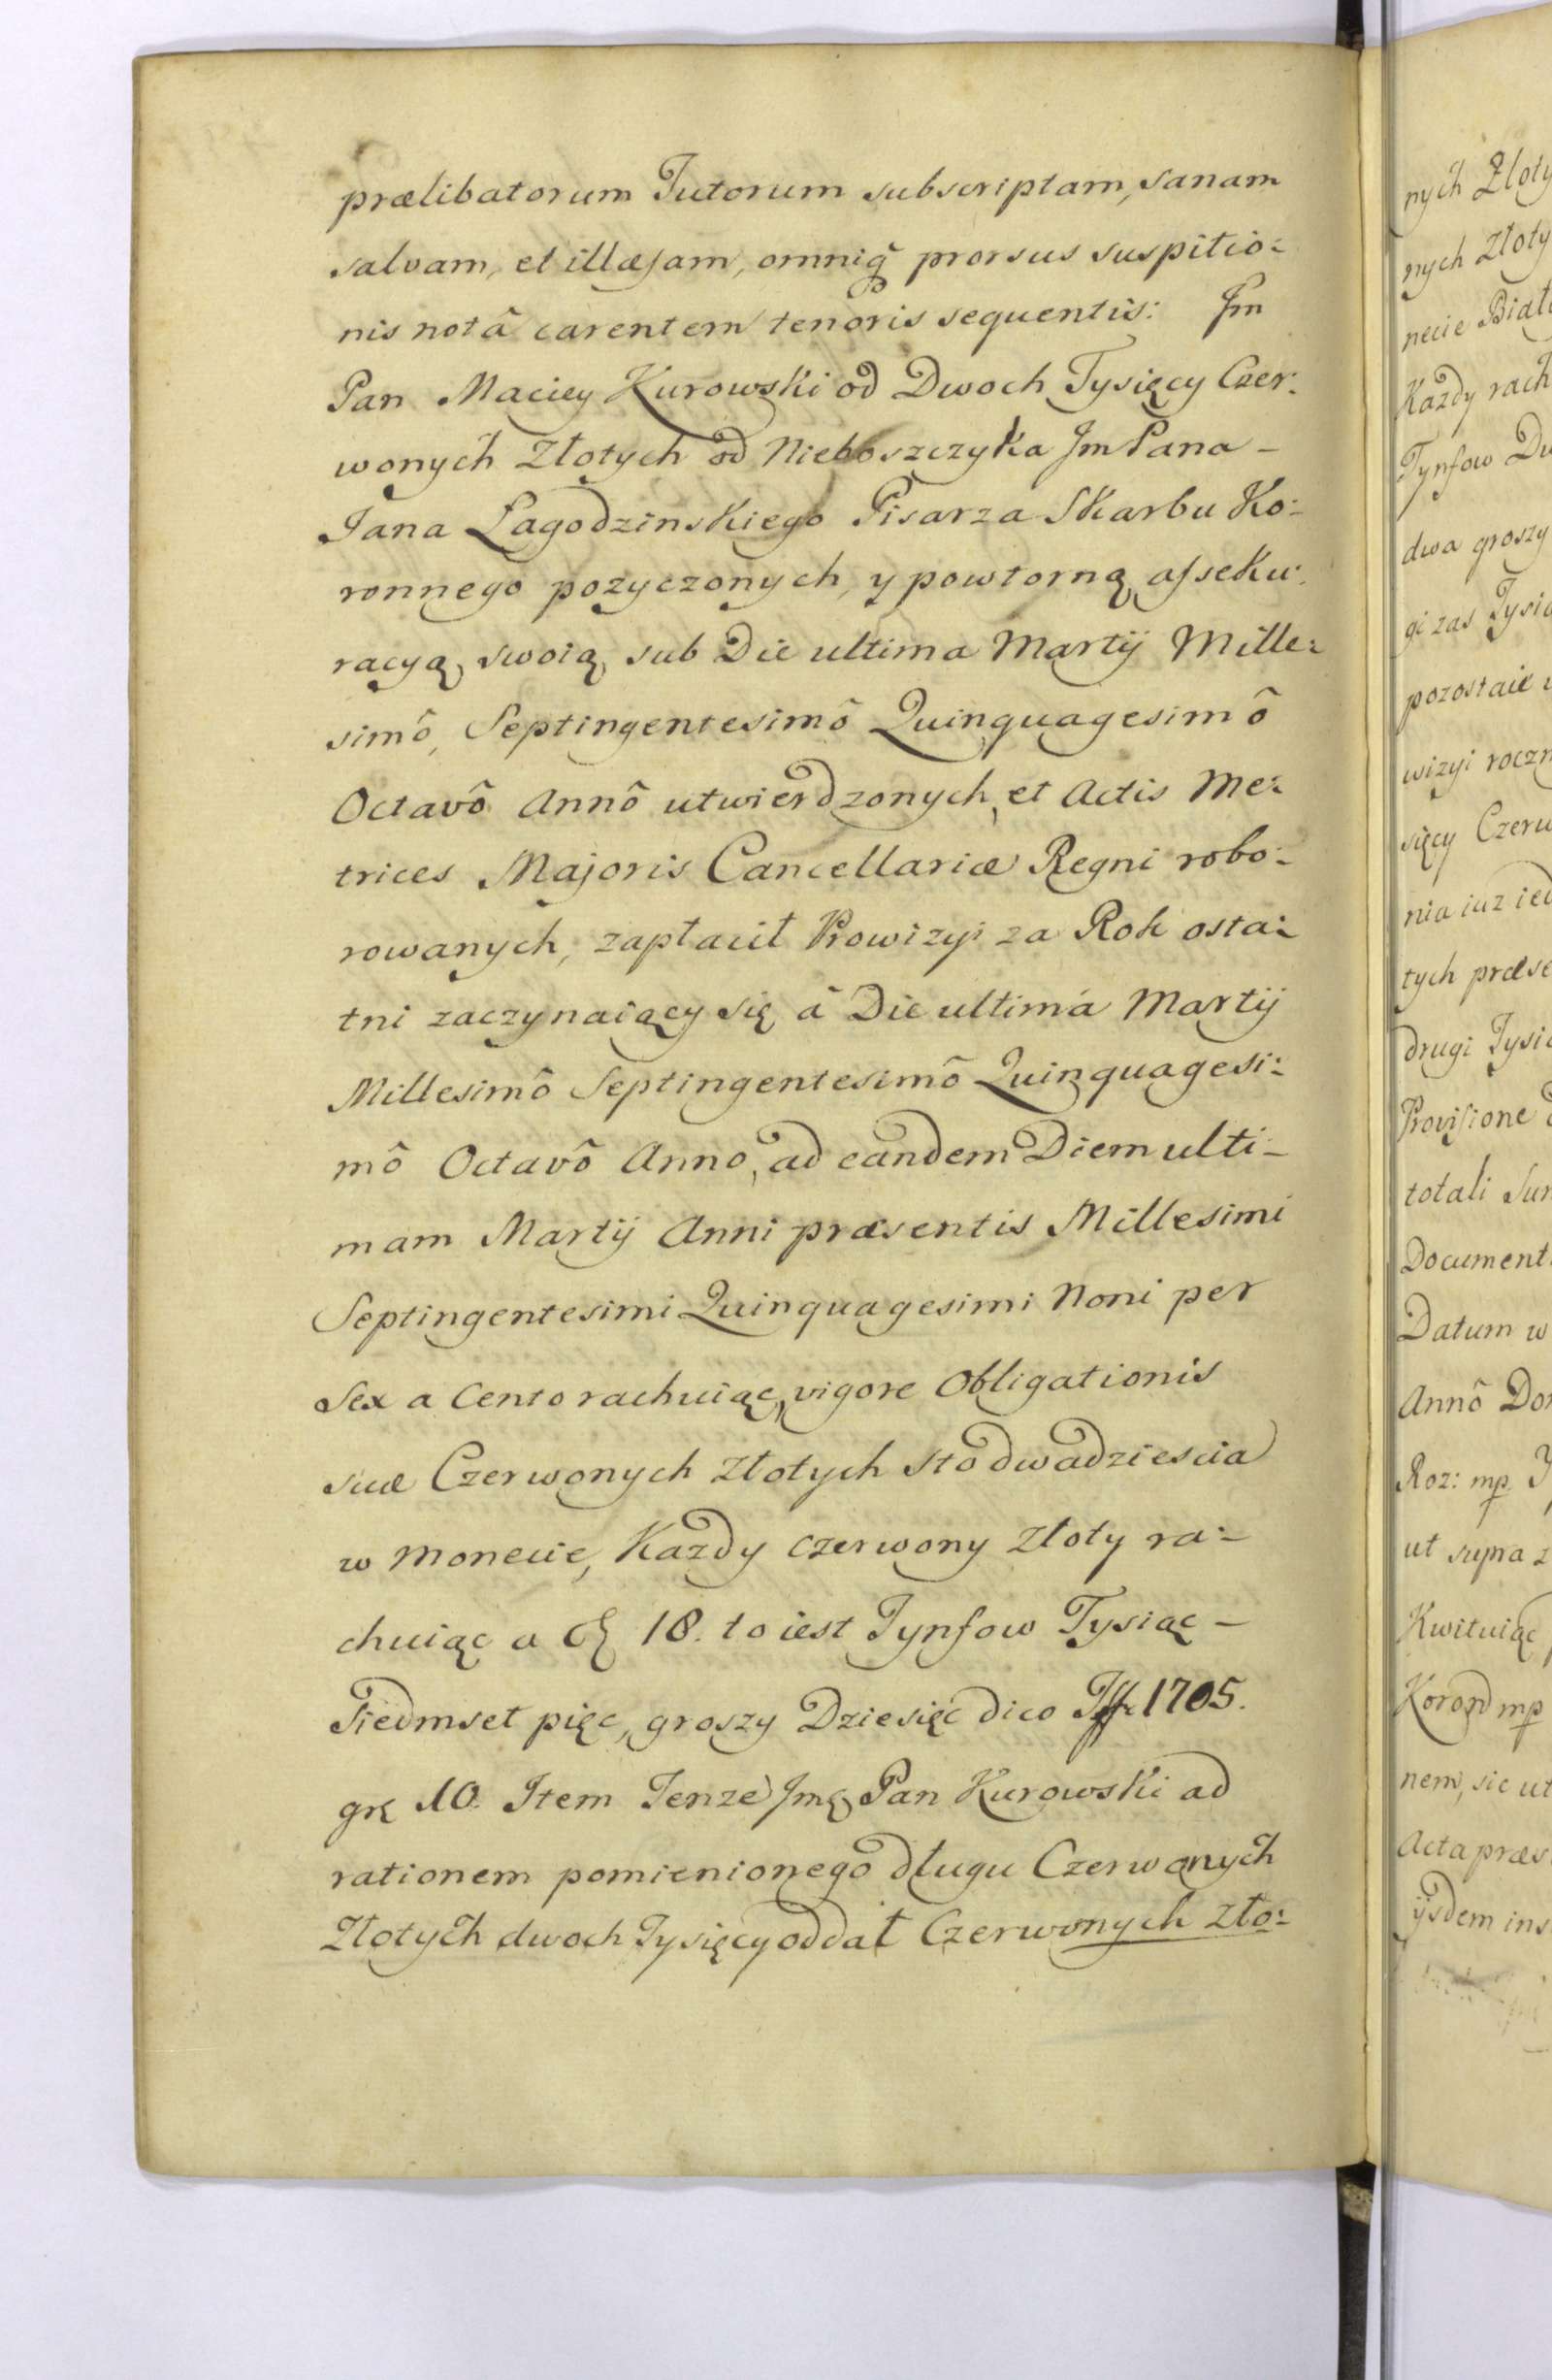 prælibatorum Tutorum subscriptam, sanam
salvam, et illæsam, omniq̃ prorsus suspitio:
nis notâ carentem tenoris sequentis: Jm
Pan Maciey Kurowski od Dwoch Tysięcy Czer:
wonych Złotych od Nieboszczyka Jm Pana -
Jana Łagodzinskiego Pisarza Skarbu Ko:
ronnego pozyczonych, y powtorną asseku:
racyą swoią, sub Die ultima Martij Mille:
simô, Septingentesimô Quinquagesimô
Octavô Annô utwierdzonych, et Actis Me:
trices Majoris Cancellariæ Regni robo:
rowanych, zapłacił Prowizyi za Rok osta:
tni zaczynaiący się â Die ultimâ Martij
Millesimô Septingentesimô Quinquagesi:
mô Octavô Anno, ad eandem Diem ulti-
mam Martij Anni præsentis Millesimi
Septingentesimi Quinquagesimi Noni per
Sex a Cento rachuiąc, vigore Obligationis
suæ Czerwonych Złotych sto dwadziescia
w Monecie, Kazdy czerwony Złoty ra:
chuiąc a 18. to iest Tynfow Tysiąc -
Siedmset pięc, groszy Dziesięc dico Tff 1705.
gr 10. Item Tenze Jmć Pan Kurowski ad
rationem pomienionego długu Czerwonych
Złotych dwoch Tysięcy oddał Czerwonych Zło:
nych Złoty
nych Złoty
necie Biał
Kazdy rach
Tynfow Dw
dwa groszy
gi zas Tysią
pozostaie
wizyi roczn
sięcy Czerw
nia iuz ied
tych præse
drugi Tysią
Provisione
totali Sum
Document
Datum w
Annô Dom
Roz: mp.
ut supra z
Kwituiąc
Koron mp
nem, sic ut
Acta præs
ijsdem ins